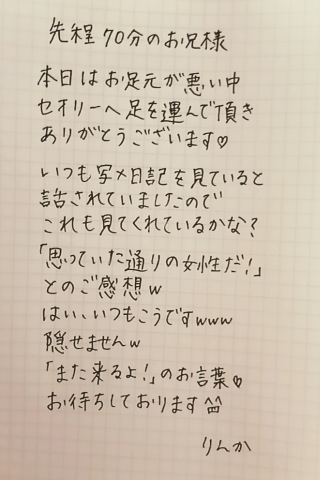 先程70分のお兄様
本日はお足元が悪い中
セオリーへ足を運んで頂き
ありがとうございます♡
いつも写メ日記を見ていると
話されていましたので
これも見てくれているかな?
「思っていた通りの女性だ!」
とのご感想w
はい、いつもこうですwww
隠せませんw
「また来るよ!」のお言葉♡
お待ちしております^^
りんか